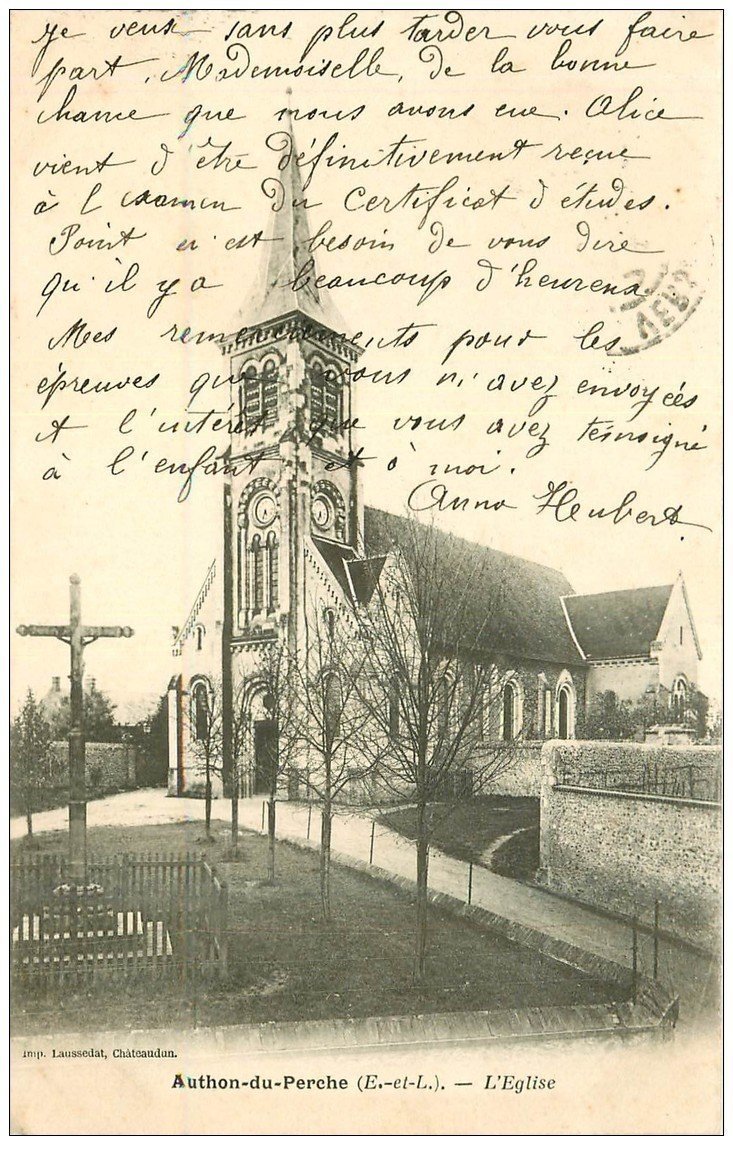 Je veux sans plus tarder vous faire
part, Mademoiselle, de la bonne
chance que nous avons eue. Alice
vient d'être définitivement reçue
à l'examen du Certificat d'études.
Point n'est besoin de vous dire
qu'il y a beaucoup d'heureux
Mes remerciements pour les
épreuves que vous m'avez envoyées
et l'intérêt que vous avez témoigné
à l'enfant et à moi.
Anna Heubert
Imp. Laussedat, Châteaudun.
Authon-du-Perche (E.-et-L.). — L'Eglise